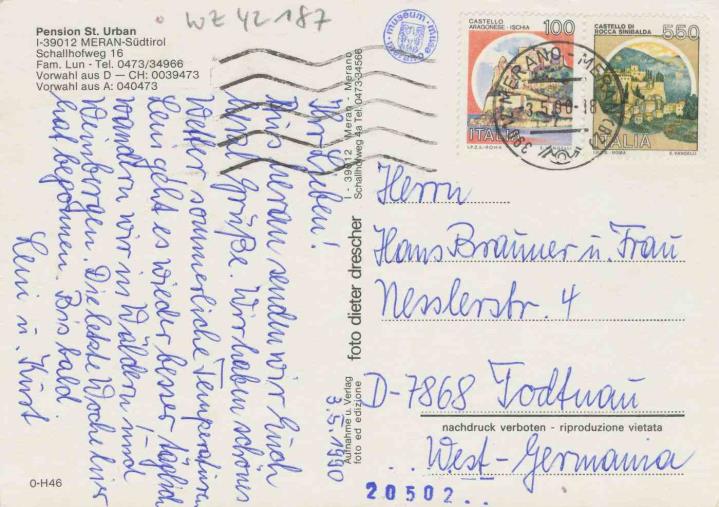 WZ 42187
Pension St. Urban
I-39012 MERAN-Südtirol
Schallhofweg 16
Fam. Lun - Tel. 0473/34966
Vorwahl aus D — CH: 0039473
Vorwahl aus A: 040473
Ihr Lieben!
Aus Meran senden wir Euch
liebe Grüße. Wir haben schönes
Wetter sommerliche Temperaturen
Leni geht es wieder besser täglich
wandern wir in Wäldern und
Weinbergen. Die letzte Woche hier
hat begonnen. Bis bald
Leni u. Kurt
3.5.1990
0-H46
I - 39012 Meran - Merano
Schallhofweg 4a Tel. 0473-34566
foto dieter drescher
Aufnahme u. Verlag
foto ed edizione
CASTELLO
ARAGONESE - ISCHIA
100
ITALIA
I.P.Z.S. - ROMA
CASTELLO DI
ROCCA SINIBALDA
550
ITALIA
I.P.Z.S. - ROMA
E. VANGELLI
MERANO - MERAN
Herrn
Hans Braüner u. Frau
Nesslerstr. 4
D-7868 Todtnau
nachdruck verboten - riproduzione vietata
West-Germania
20502..